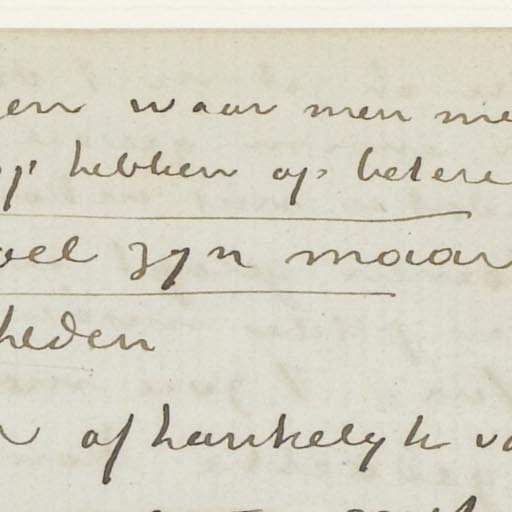 en waar men me
hebben op betere
oel zyn maar
heden
afhankelyk va